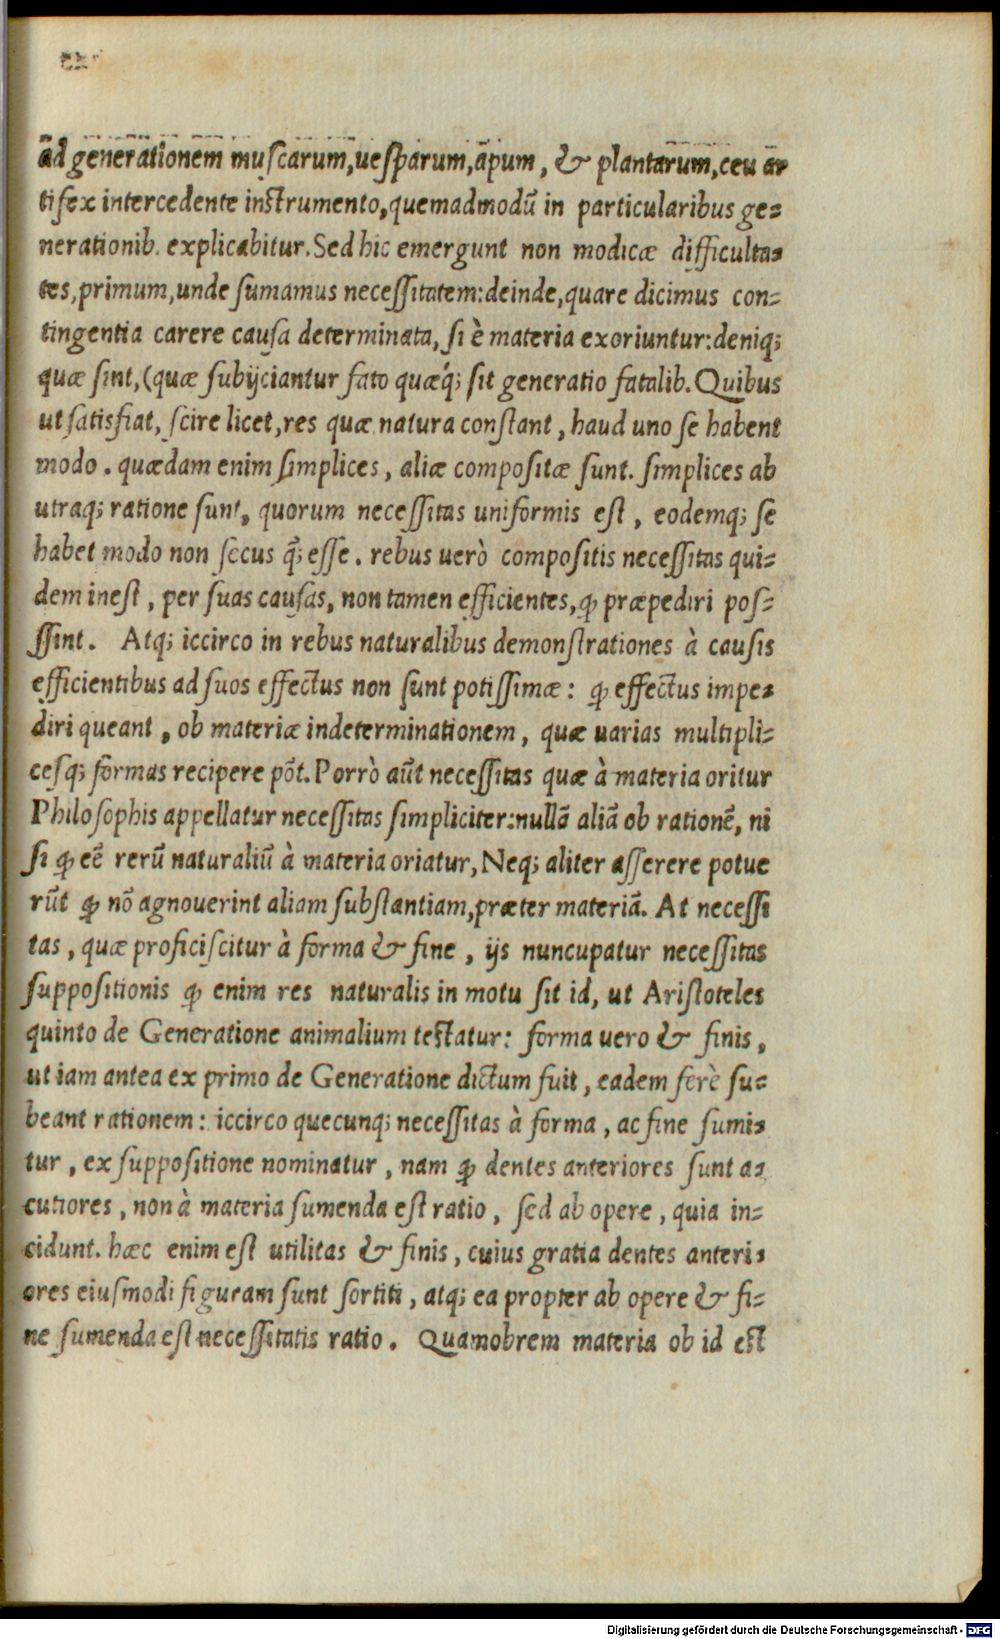 ad generationem muſcarum, ueſparum, apum, & plantarum, ceu ar
tifex intercedente inſtrumento, quemadmodũ in particularibus ge⸗
nerationib. explicabitur. Sed hic emergunt non modicæ difficulta⸗
tes, primum, unde ſumamus neceſſitatem: deinde, quare dicimus con⸗
tingentia carere cauſa determinata, ſi è materia exoriuntur: deniq;
quæ ſint, (quæ ſubijciantur fato quæq́; ſit generatio fatalib. Quibus
ut ſatisfiat, ſcire licet, res quæ natura conſtant, haud uno ſe habent
modo. quædam enim ſimplices, aliæ compoſitæ ſunt. ſimplices ab
utraq; ratione ſunt, quorum neceſſitas uniformis eſt, eodemq; ſe
habet modo non ſecus q̃; eſſe. rebus uerò compoſitis neceſſitas qui⸗
dem ineſt, per ſuas cauſas, non tamen efficientes, ꝙ præpediri poſ⸗
ſint. Atq; iccirco in rebus naturalibus demonſtrationes à cauſis
efficientibus ad ſuos effectus non ſunt potiſſimæ: ꝙ effectus impe⸗
diri queant, ob materiæ indeterminationem, quæ uarias multipli⸗
ceſq; formas recipere põt. Porrò aũt neceſſitas quæ à materia oritur
Philoſophis appellatur neceſſitas ſimpliciter: nullã aliã ob rationẽ, ni
ſi ꝙ eẽ rerũ naturaliũ à materia oriatur, Neq; aliter aſſerere potue
rũt ꝙ nõ agnouerint aliam ſubſtantiam, præter materiã. At neceſſi
tas, quæ proficiſcitur à forma & fine, ijs nuncupatur neceſſitas
ſuppoſitionis ꝙ enim res naturalis in motu ſit id, ut Ariſtoteles
quinto de Generatione animalium teſtatur: forma vero & finis,
ut iam antea ex primo de Generatione dictum fuit, eadem ferè ſu⸗
beant rationem: iccirco quecunq; neceſſitas à forma, ac fine ſumi⸗
tur, ex ſuppoſitione nominatur, nam ꝙ dentes anteriores ſunt a⸗
cutiores, non à materia ſumenda eſt ratio, ſed ab opere, quia in⸗
cidunt. hæc enim eſt utilitas & finis, cuius gratia dentes anteri⸗
ores eiuſmodi figuram ſunt ſortiti, atq; ea propter ab opere & fi⸗
ne ſumenda eſt neceſſitatis ratio. Quamobrem materia ob id eſt
Digitalisierung gefördert durch die Deutsche Forschungsgemeinschaft - DFG